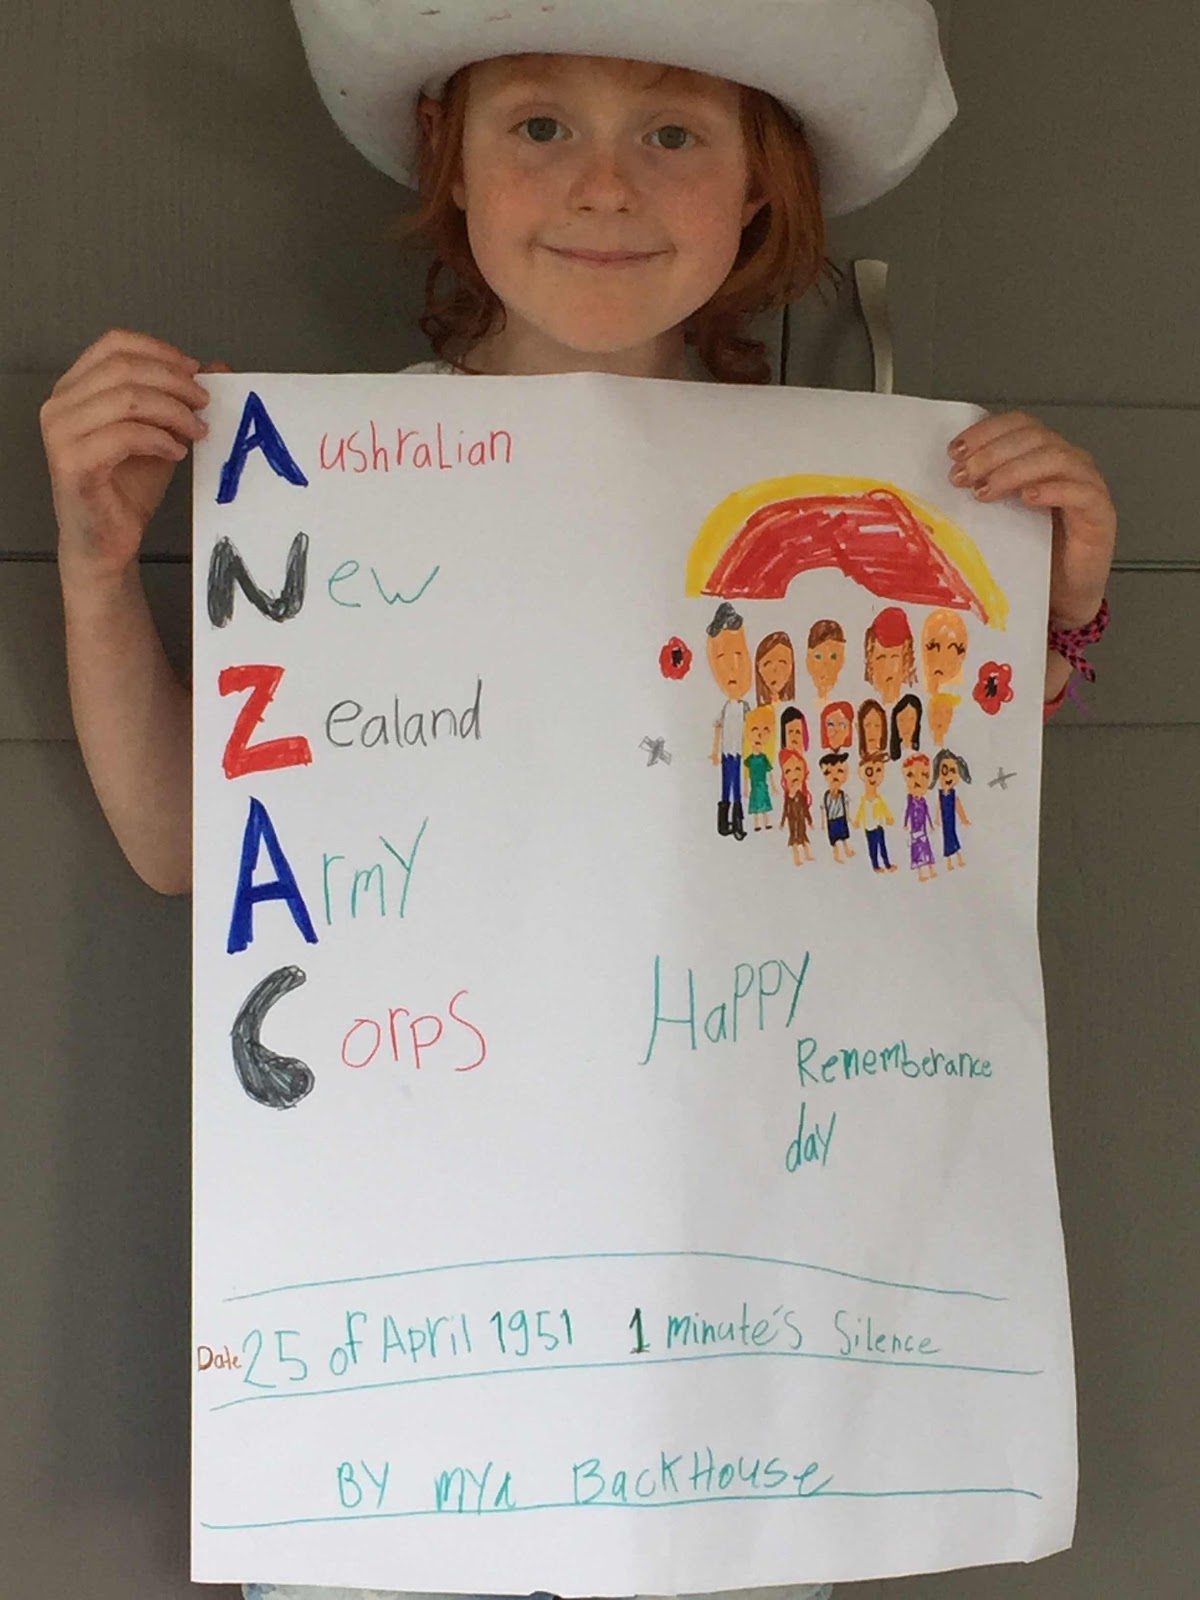 Aushralian
New
Zealand
Army
Corps
Happy
Rememberance
day
Date 25 of April 1951 1 minute's Silence
BY mya BackHouse